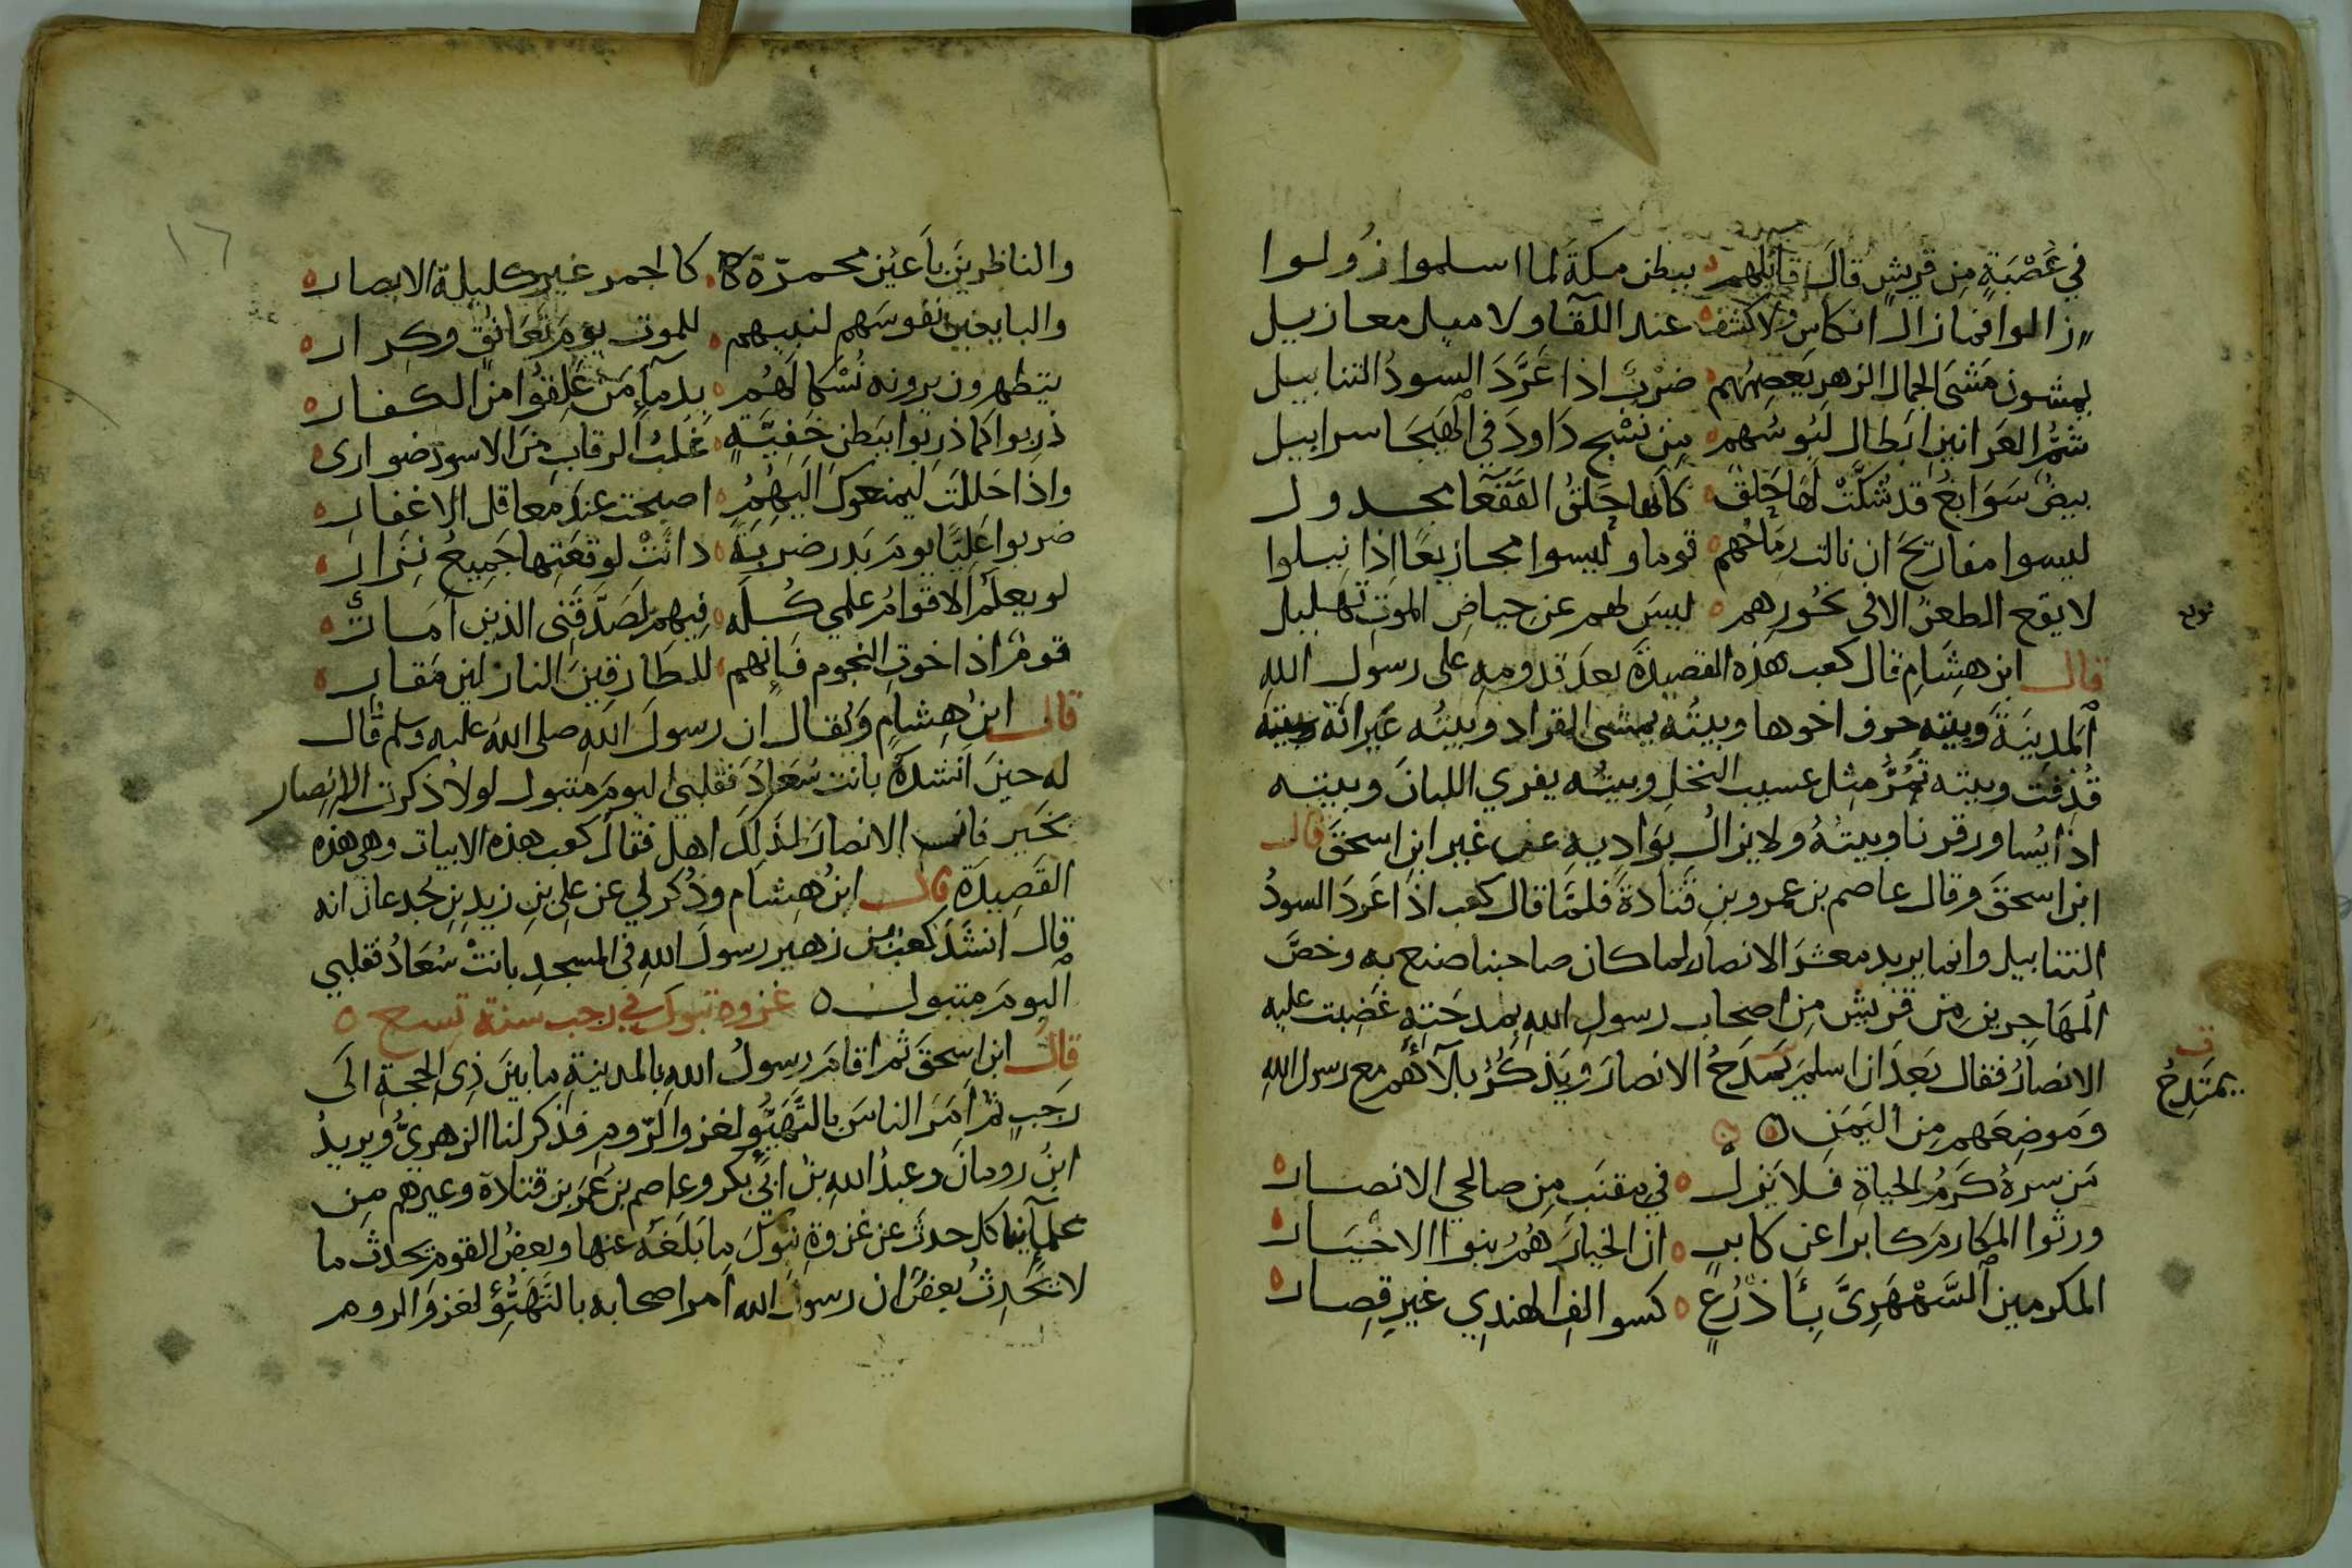 في عُصْبَةٍ مِن قريشٍ قالَ قائلهم ببطن مكةَ لما اسلموا زُولوا
زالوا فما زال انكاس ولا كشف عند اللقآ ولا ميل معازيل
يمشون مَشىَ الجمال الزهر يعصمهم ضرْبٌ اذا عَرَّدَ السودُ التنابيل
شمُّ العَرانين ابطال لَبوسُهم مِن نسْج دَاودَ في الهَيجَا سرابيل
بيضٌ سَوَابغٌ قد شكَّتْ لها حَلَقٌ كأنها حلقُ القفعآ مجدول
ليسوا مفاريحَ ان نالت رماحُهم قوما وليسوا مجازيعًا اذا نيلوا
لا يقع الطعنُ الا في نحُورِهم ليسَ لهم عن حياضِ الموتِ تهليل
قال ابن هِشَامٍ قال كعب هذه القصيدةَ بعدَ قدومِهِ على رسولِ اللهِ
المدِينَةَ وبيته حرف اخوها وبيتُه يمشى القراد وبيتُه عَيرانَة
قُذِفَت وبيته تَمُرُّ مِثل عسيب النخل وبيتُه يفري اللبانَ وبيته
اذا يُساور قرنا وبيتهُ ولا يزالُ بوَادِيهِ عن غير ابن اسحقَ قال
ابن اسحقَ وقال عاصم بن عمر وبنِ قَتادةَ فلمَّا قال كعب اذا عَردَ السودُ
التنابيل وانما يريد معشرَ الانصار لما كان صاحبنا صنع به وخصَّ
المهَاجرينِ مِن قريش مِن اصحابِ رسولِ اللهِ بمِدحَتِهِ غَضِبت عليه
الانصارُ فقال بَعدَ ان اسلمَ يَمدَحُ الانصارَ ويَذكُرُ بلآهُم مع رسول اللهِ
يمتَدِحُ
وَمَوضِعَهم مِن اليَمَنِ
مَن سرهُ كَرَمُ الحياةِ فلا يَزل في مِقنَبٍ مِن صالحي الانصار
ورثوا المكارمَ كابرا عن كابرٍ ان الخيارَ هُمُ بنوا الاخيَار
المكرهين السَّمْهَرِىَّ بِأَذرُعٍ كسوالفِ الهندِي غيرِ قِصار
١٦
والناظرِينَ بأعيُن محمرّة كالجمر غير كليلة الابصار
والبايعين نفوسَهم لنبيهم للموت يومَ تعَانُقٍ وكِرار
يتطهرون يرونه نُسْكا لَهُم بدمآءِ مَن عَلِقوُا من الكفار
دَرِبوا كما دَرِبوا ببَطنِ خَفِيَّةٍ غُلبُ الرقابِ مِنَ الاسود ضوارى
واذا حَللتَ ليمنعوك اليهِمُ اصبحت عندَ معاقل الاغفار
ضربوا عَليًّا يومَ بَدر ضربةً دانَتْ لوقعَتِها جَمِيعُ نِزارِ
لو يعلَمُ الاقوامُ علمي كُلَّه فِيهم لصَدَّقَنِى الذين أمَارى
قومٌ اذا خوتِ النجوم فَإنهم للطَارقِينَ النازلين مَقارِى
قال ابنُ هِشامٍ وَيُقال ان رسولَ اللهِ صلى اللهُ عليه وسلم قال
له حينَ انشدَهُ بانت سُعَادُ فقلبى اليومَ متبول لولا ذكرت الانصار
بخَير فان الانصارَ لذَلِكَ اهل فقال كعب هذه الابيات وهي هذه
القَصِيدَة قال ابنُ هِشام وذُكر لي عن علي بنِ زيدِ بنِ جُدعان انه
قال انشَدَ كعب بن زهير رسولَ اللهِ في المسجدِ بانتْ سُعَادُ فقلبي
اليومَ متبول غزوة تبوك في رجب سنة تسع
قال ابن اسحقَ ثم اقامَ رسولُ اللهِ بالمدينةِ ما بينَ ذِي الحِجةِ الَى
رَجبٍ ثم أمَرَ الناسَ بالتَّهَيُّو لغزو الرّوم فذكر لنا الزهريُّ ويزيدُ
ابنُ رومانَ وعبدُ اللهِ بنُ ابي بكر وعاصم بن عُمرَ بن قتادة وغيرهم مِن
علمآئِنا كل حدثَ عن غزوةِ تبوكَ ما بَلَغَه عنها وبعضُ القومِ يحدث ما
لا يُحَدِثُ بعضٌ ان رسولَ الله امر اصحابه بالتَهَيُّؤ لغزو الروم